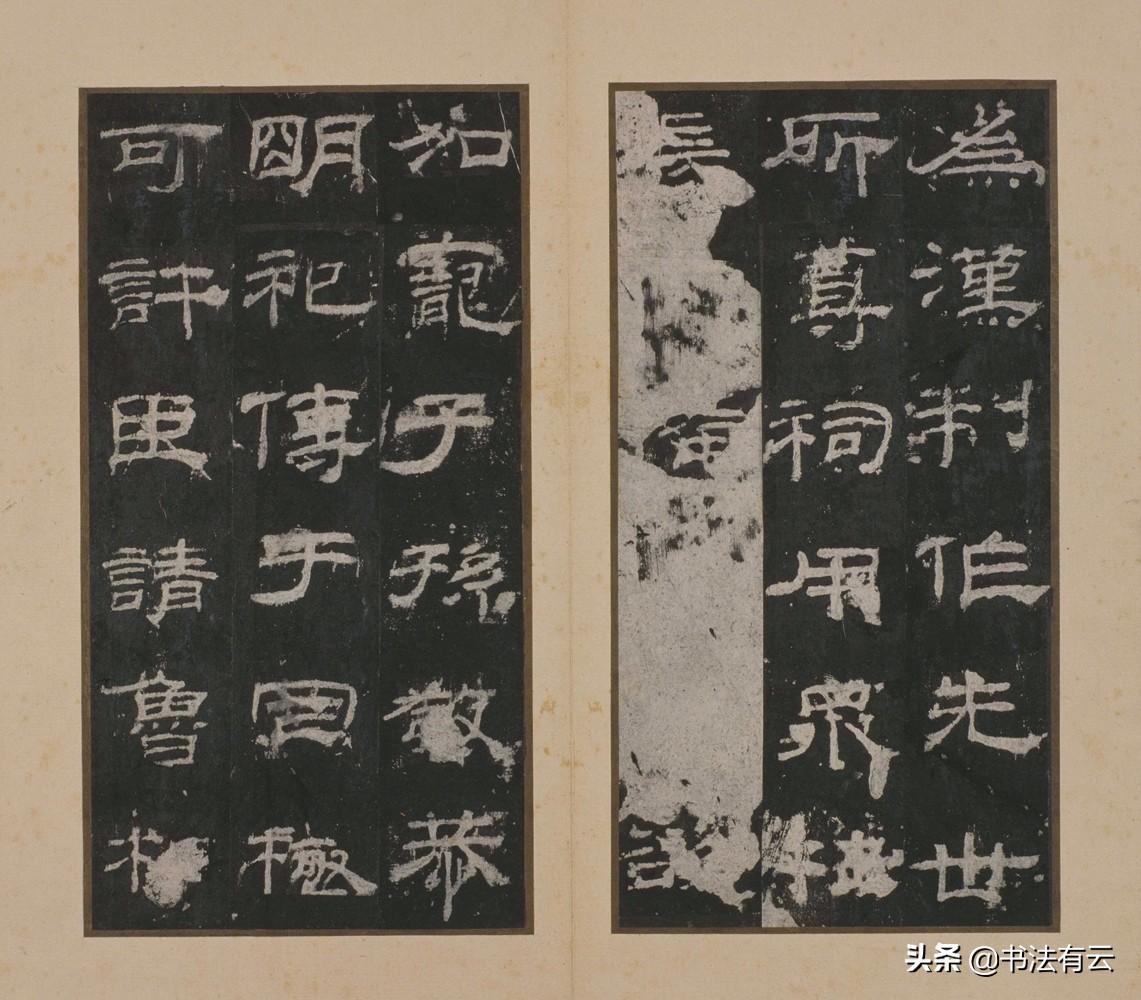 為漢制作先世
所尊祠用眾牲
長
加寵子孫敬恭
明祀傳于罔極
可許臣請魯相
头条 @书法有云